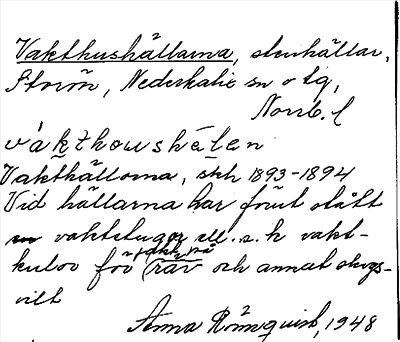 Vakthushällarna, stenhällar,
Storön, Nederkalix sn o tg,
Norrb. l
våkthowshèlen
Vakthällorna, skh 1893-1894
Vid hällarna har förut stått
vaktstugor ell. s. k vakt-
jakt på
kulor för räv och annat skogs-
vilt
Anna Rönnquist, 1948